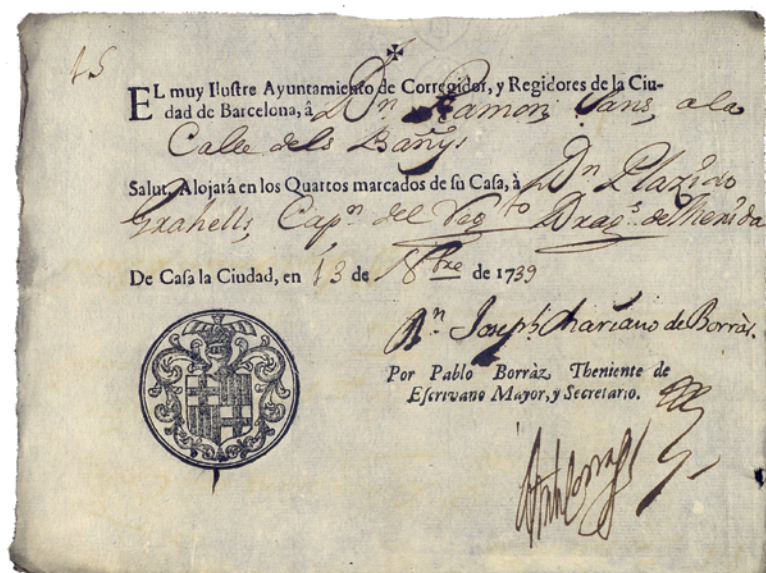 15
EL muy Iluſtre Ayuntamiento de Corregidor, y Regidores de la Ciu-
dad de Barcelona, â Dn. Ramon Sans, a la
Calle dels Bañys
Salut, Alojará en los Quartos marcados de ſu Caſa, à Dn. Plazido
Grahells, Capn. del Regto Drags. de Merida
De Caſa la Ciudad, en 13 de 8bre de 1739
Dn. Joseph Mariano de Borràs.
Por Pablo Borràz Theniente de
Eſcrivano Mayor, y Secretario.